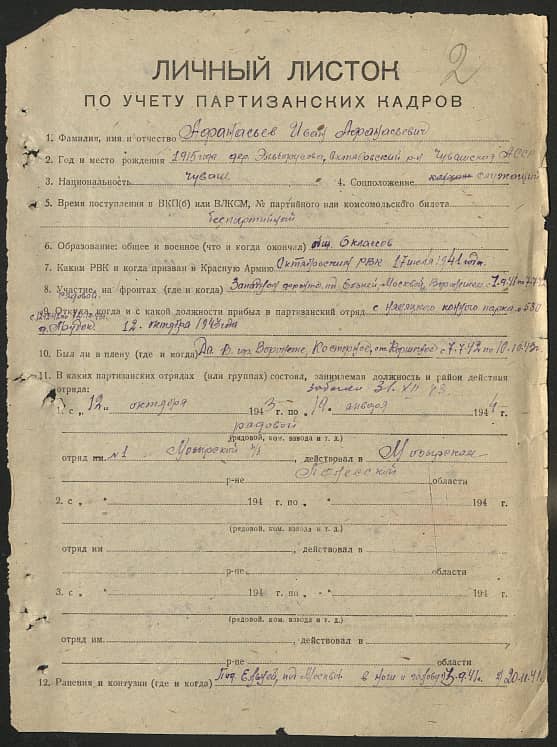 2
ЛИЧНЫЙ ЛИСТОК
ПО УЧЕТУ ПАРТИЗАНСКИХ КАДРОВ
1. Фамилия, имя и отчество Афанасьев Иван Афанасьевич
2. Год и место рождения 1915 года дер. Октябрьский р-н Чувашская АССР
3. Национальность чуваш 4. Соцположение служащий
5. Время поступления в ВКП(б) или ВЛКСМ, № партийного или комсомольского билета
беспартийный
6. Образование: общее и военное (что и когда окончил) общ. 6 классов
7. Каким РВК и когда призван в Красную Армию Октябрьским РВК 17 июля 1941 года.
8. Участие на фронтах (где и когда) Западном фронте, под Ельней, Москвой, Воронежем с 7.9.41 по 7.7.42
рядовой
9. Откуда, когда и с какой должности прибыл в партизанский отряд с конного парка № 580
12. октября 1943 года
10. Был ли в плену (где и когда) Да В. гор. Воронеже, с 7.7.42 по 10.10.43г.
11. В каких партизанских отрядах (или группах) состоял, занимаемая должность и район действия
отряда: 31. XII 43
1. с „12 „ октября 1943 г. по „19 „ января 1944 г.
рядовой
(рядовой, ком. взвода и т. д.)
отряд им. №1 Мозырской п/б, действовал в Мозырском
р-не Полесской области
2. с „ „ 194 г. по „ „ 194 г.
(рядовой, ком. взвода и т. д.)
отряд им , действовал в
р-не области
3. с „ „ 194 г. по „ „ 194 г.
(рядовой, ком. взвода и т. д.)
отряд им. , действовал в
р-не области
12. Ранения и контузии (где и когда) Под Ельней, под Москвой в ноги и голову 9.41г. и 20.11.41